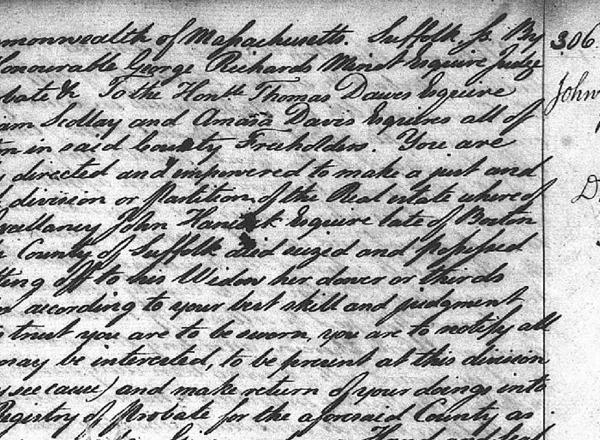 mmonwealth of Massachusetts. Suffolk Ss. By
Honourable George Richards Minot Esquire Judge
obate &c To the Honble Thomas Dawes Esquire
iam Scollay and Amasa Davis Esquires all of
on in said County Freeholders. You are
directed and impowered to make a just and
division or partition of the Real estate whereof
xcellancy John Hancock Esquire late of Boston
County of Suffolk died seized and possessed
tting off to his Widow her dower or thirds
according to your best skill and judgment
trust you are to be sworn, you are to notify all
may be interested, to be present at this division
y see cause) and make return of your doings into
Registry of Probate for the aforesaid County, as
306.
John
D